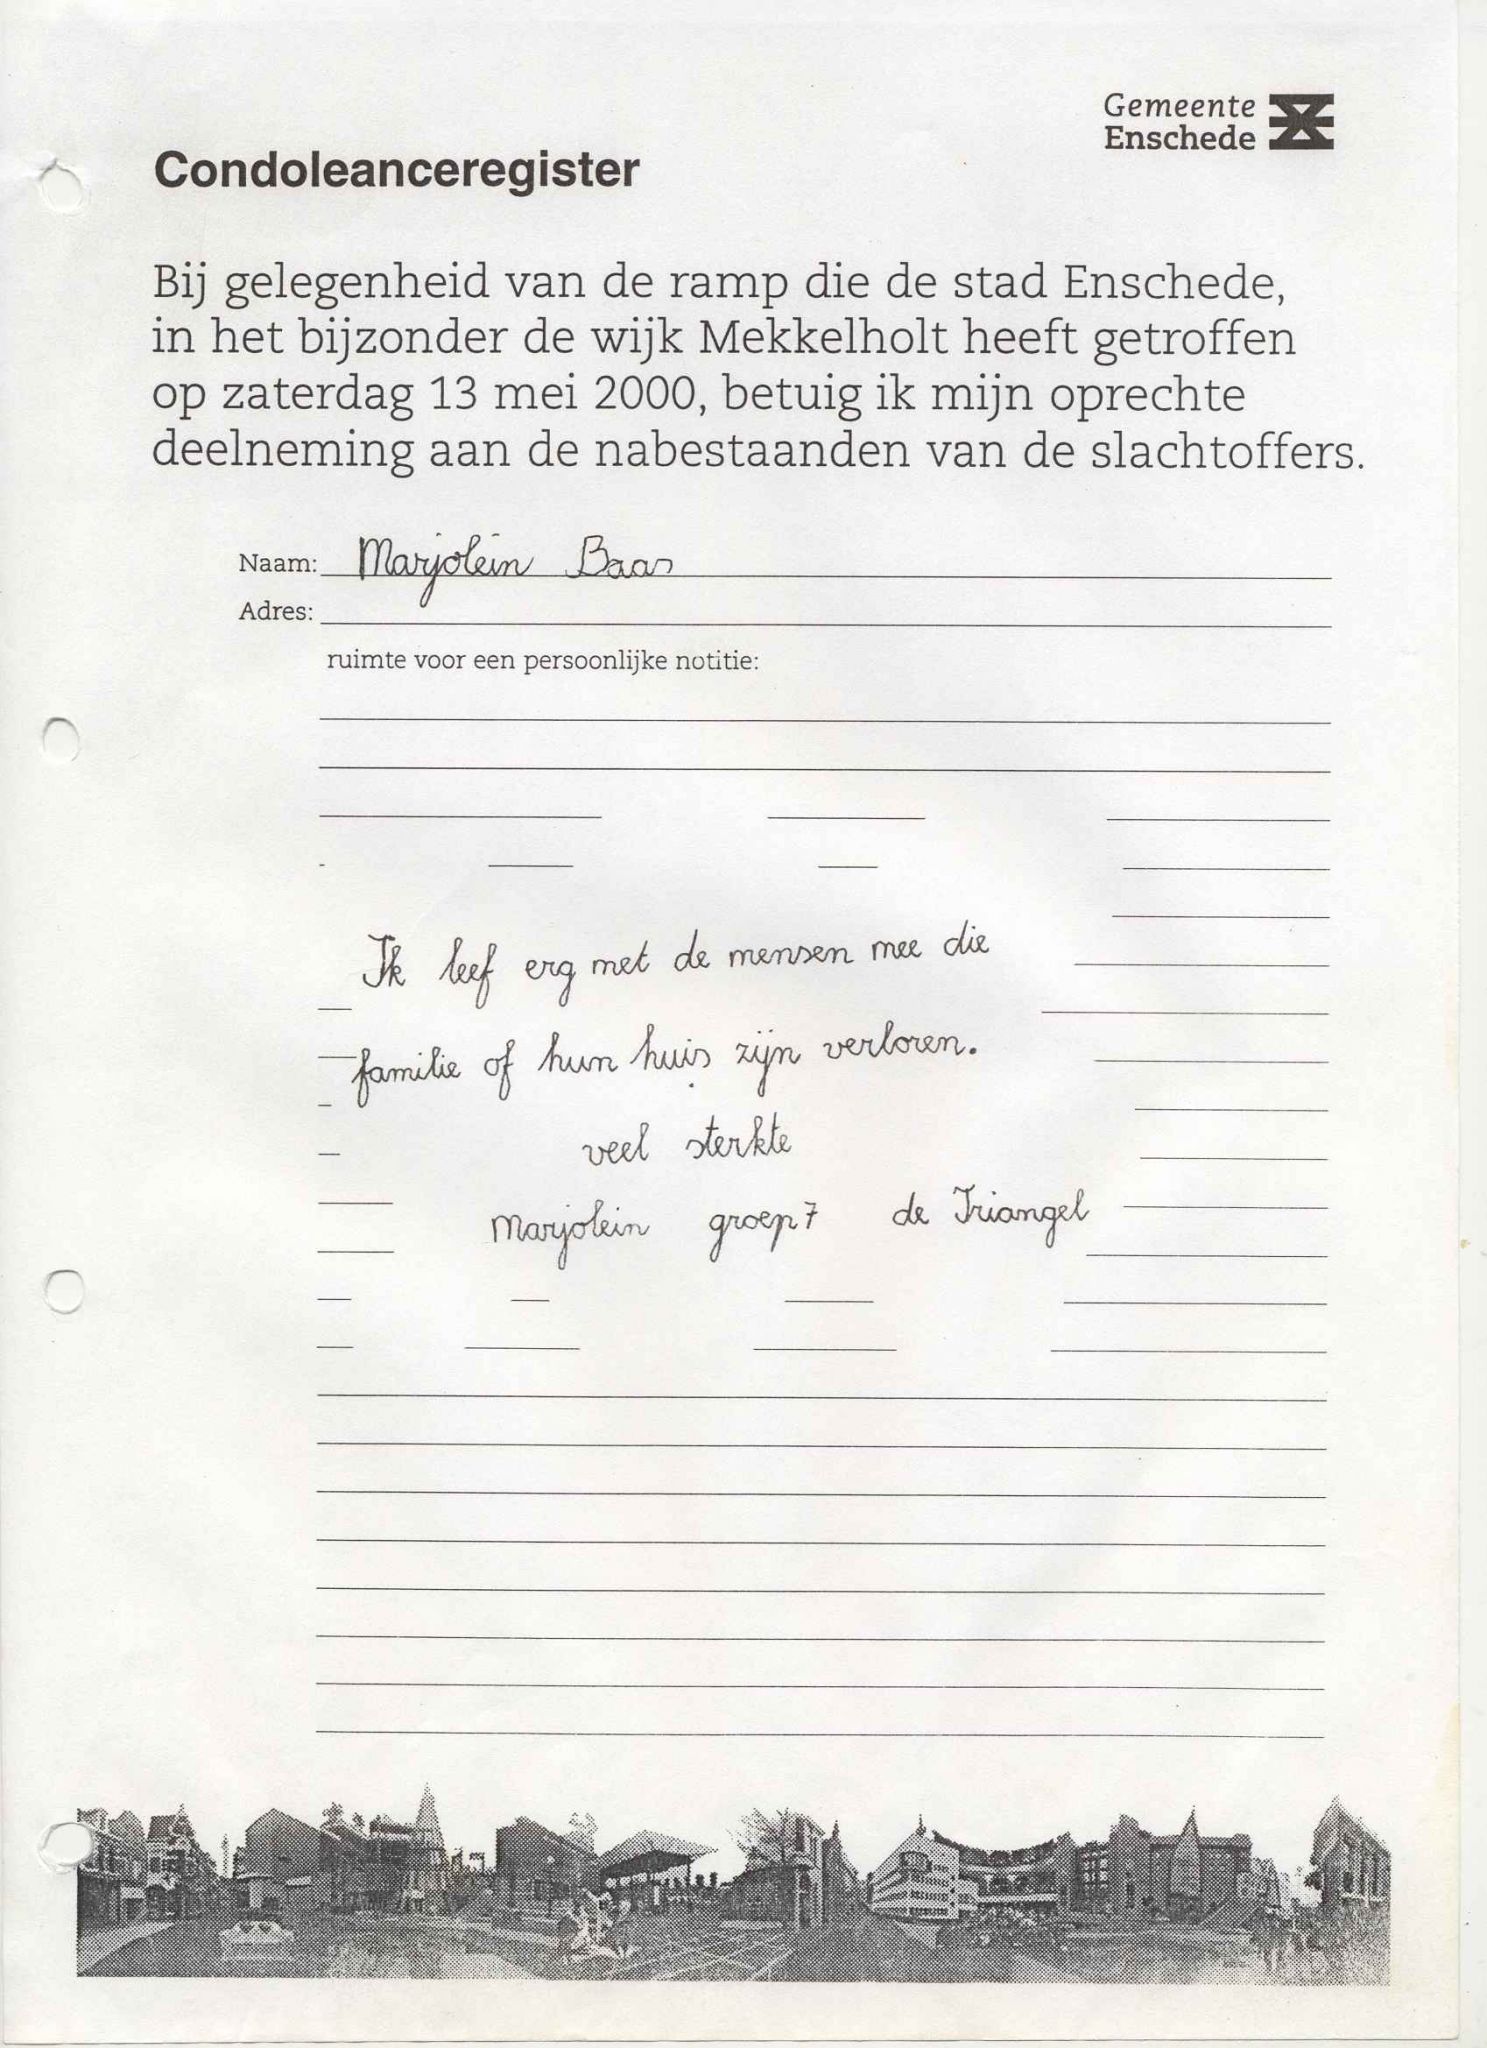 Gemeente
Enschede
Condoleanceregister
Bij gelegenheid van de ramp die de stad Enschede,
in het bijzonder de wijk Mekkelholt heeft getroffen
op zaterdag 13 mei 2000, betuig ik mijn oprechte
deelneming aan de nabestaanden van de slachtoffers.
Naam: Marjolein Baas
Adres:
ruimte voor een persoonlijke notitie:
Ik leef erg met de mensen mee die
familie of hun huis zijn verloren.
veel sterkte
Marjolein groep 7 de Triangel